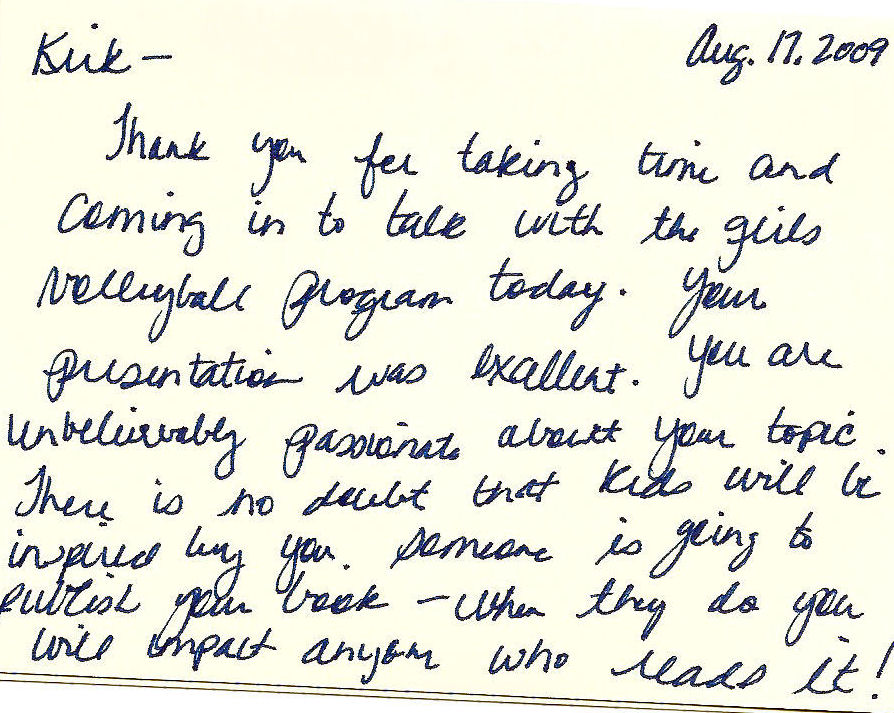 Kirk— Aug. 17. 2009
Thank you for taking time and
coming in to talk with the girls
volleyball program today. Your
presentation was excellent. You are
unbelievably passionate about your topic.
There is no doubt that kids will be
inspired by you. Someone is going to
publish your book — when they do you
will impact anyone who reads it!